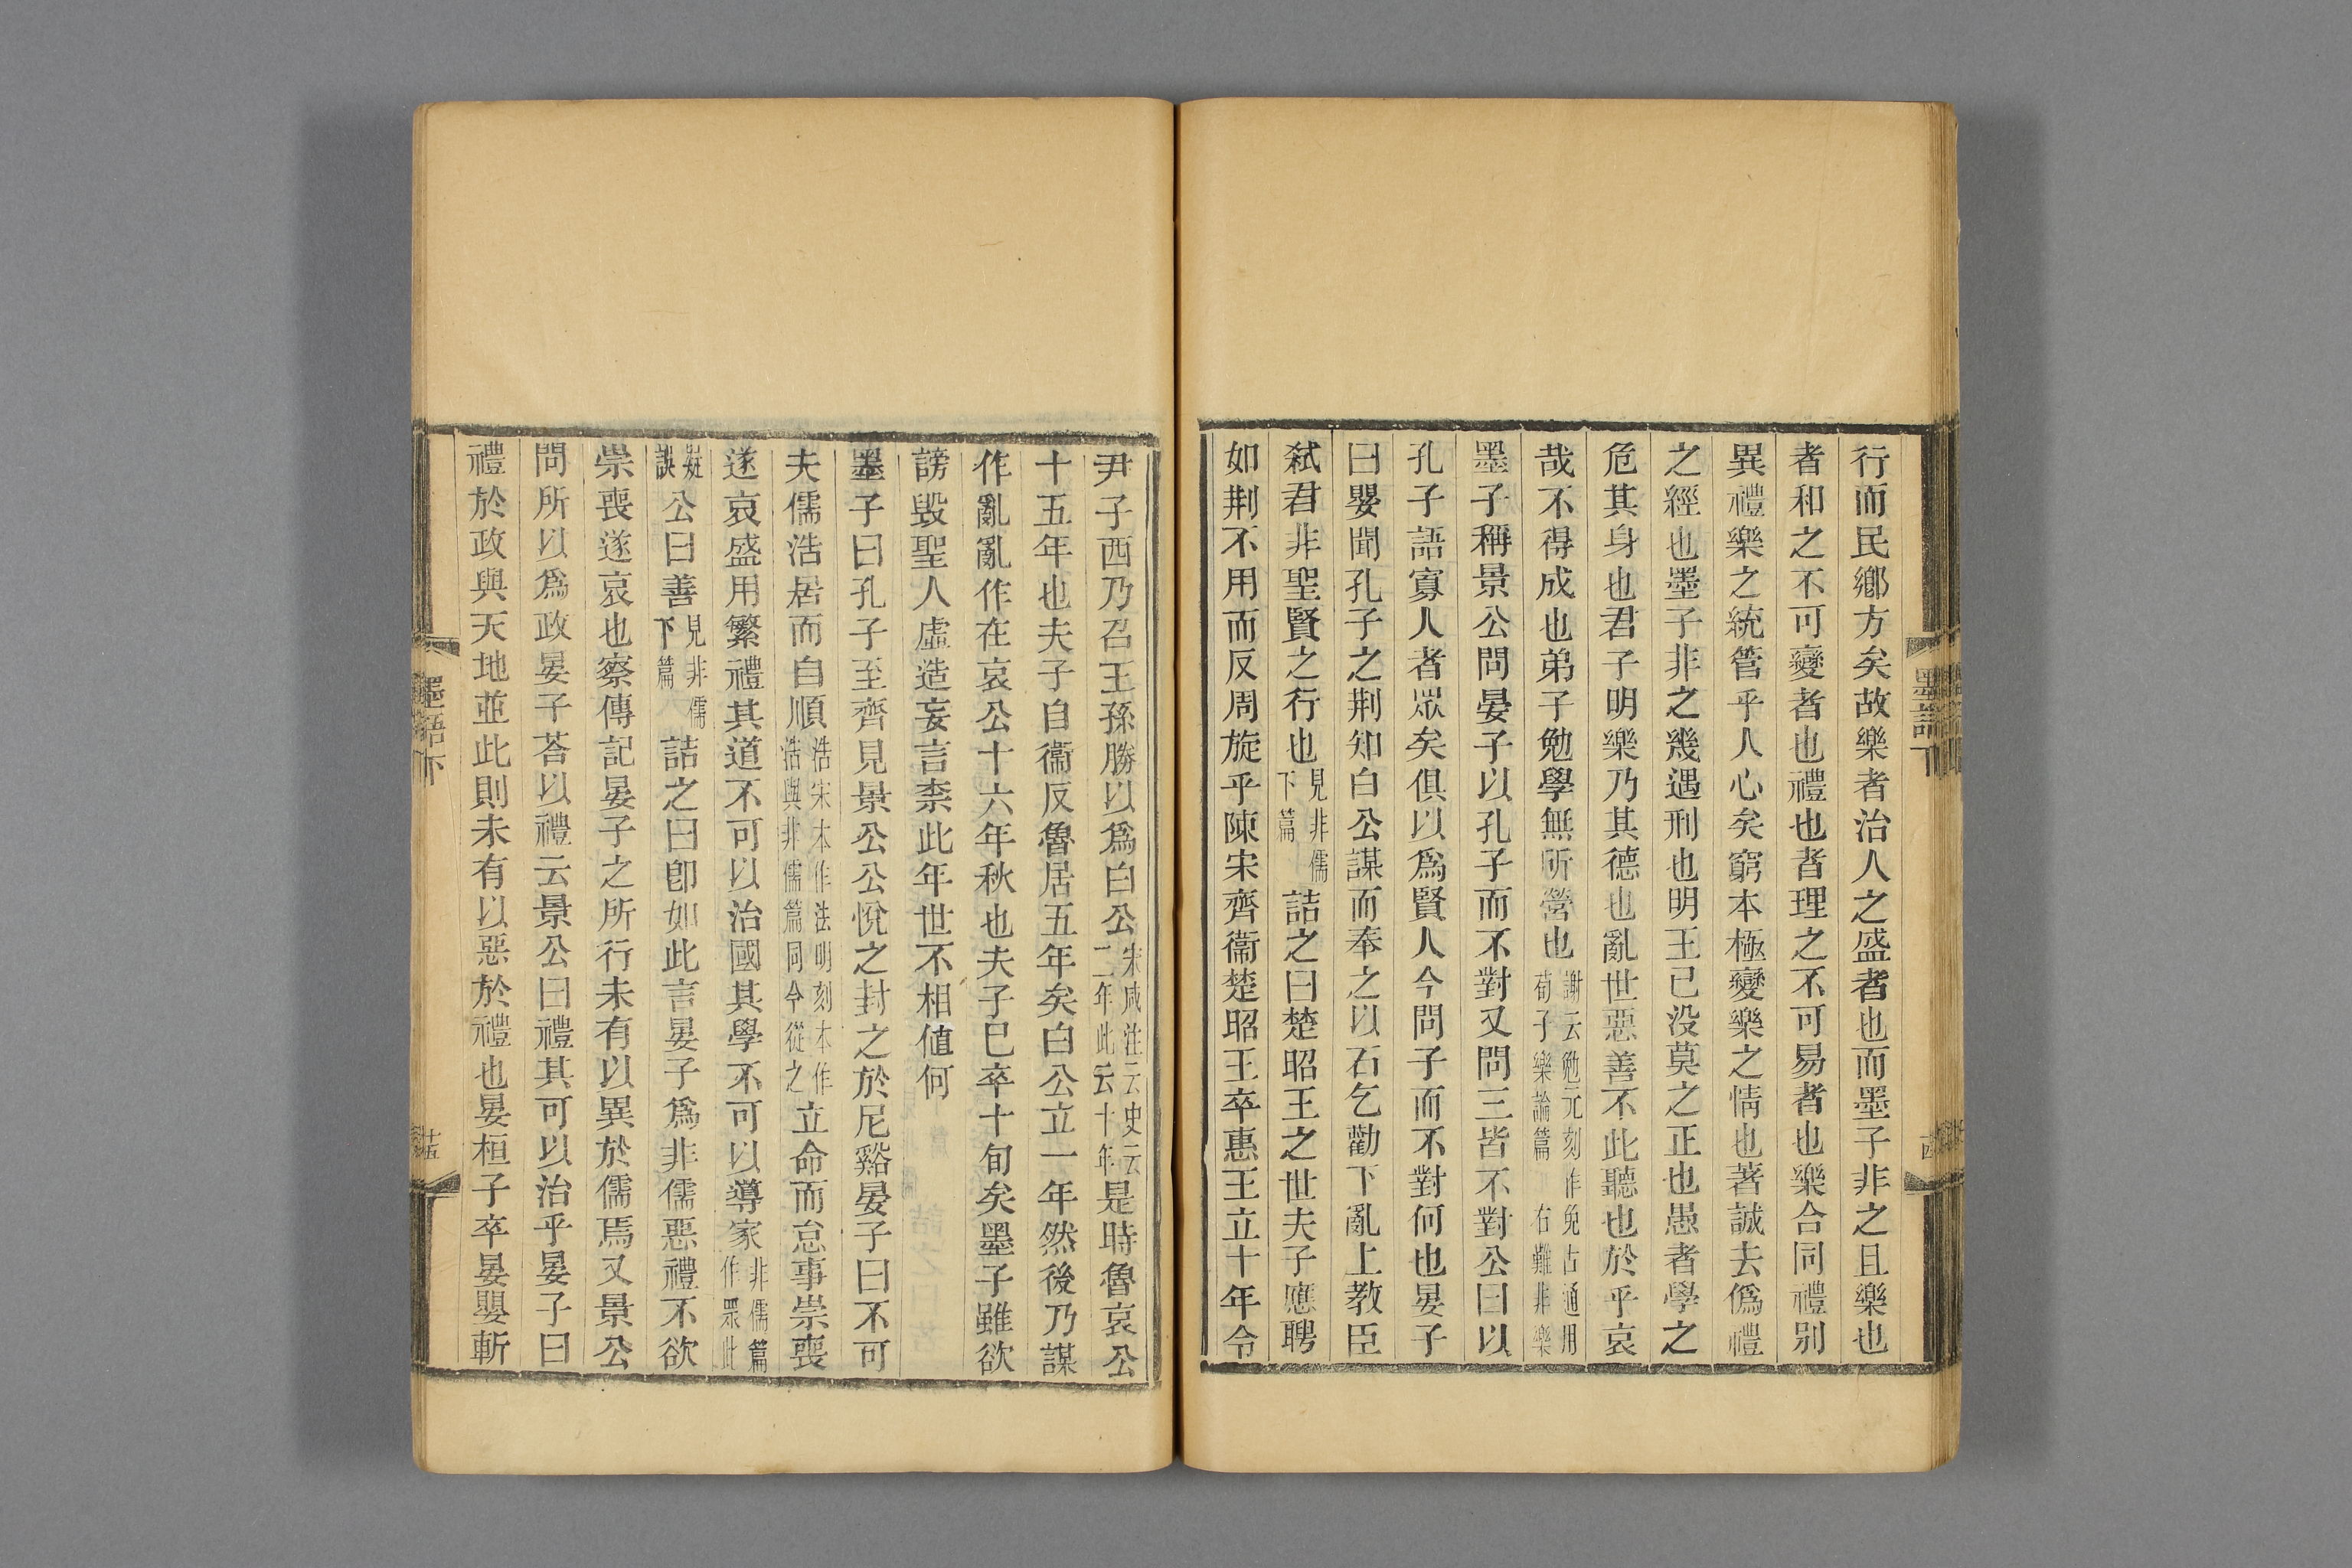 行而民鄕方矣故樂者治人之盛者也而墨子非之且樂也
者和之不可變者也禮也者理之不可易者也樂合同禮别
異禮樂之統管乎人心矣窮本極變樂之情也著誠去僞禮
之經也墨子非之幾遇刑也明王已没莫之正也愚者學之
危其身也君子明樂乃其德也亂世惡善不此聽也於乎哀
哉不得成也弟子勉學無所營也謝云勉元刻作免古通用荀子樂論篇 右難非樂
墨子稱景公問晏子以孔子而不對又問三皆不對公曰以
孔子語寡人者眾矣俱以爲賢人今問子而不對何也晏子
曰嬰聞孔子之荆知白公謀而奉之以石乞勸下亂上教臣
弑君非聖賢之行也見非儒下篇詰之曰楚昭王之世夫子應聘
如荆不用而反周旋乎陳宋齊衞楚昭王卒惠王立十年令
尹子西乃召王孫勝以爲白公宋咸注云史云二年此云十年是時魯哀公
十五年也夫子自衞反魯居五年矣白公立一年然後乃謀
作亂亂作在哀公十六年秋也夫子已卒十旬矣墨子雖欲
謗毀聖人虛造妄言柰此年世不相値何
墨子曰孔子至齊見景公公悅之封之於尼谿晏子曰不可
夫儒浩居而自順浩宋本作法明刻本作浩與非儒篇同今從之立命而怠事崇喪
遂哀盛用繁禮其道不可以治國其學不可以導家非儒篇作眾此
疑誤公曰善見非儒下篇詰之曰卽如此言晏子爲非儒惡禮不欲
崇喪遂哀也察傳記晏子之所行未有以異於儒焉又景公
問所以爲政晏子荅以禮云景公曰禮其可以治乎晏子曰
禮於政與天地並此則未有以惡於禮也晏桓子卒晏嬰斬
墨語下
十五